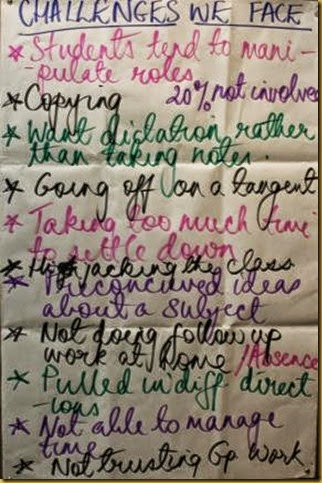 CHALLENGES WE FACE
* Students tend to mani-
pulate roles
* Copying 20% not involved
* Want dictation rather
than taking notes.
* Going off on a tangent
* Taking too much time
to settle down
* Hijacking the class
* Preconceived ideas
about a subject
* Not doing follow up
work at home /Absence
* Pulled in diff direct
-ions
* Not able to manage
time
* Not trusting Gp work.